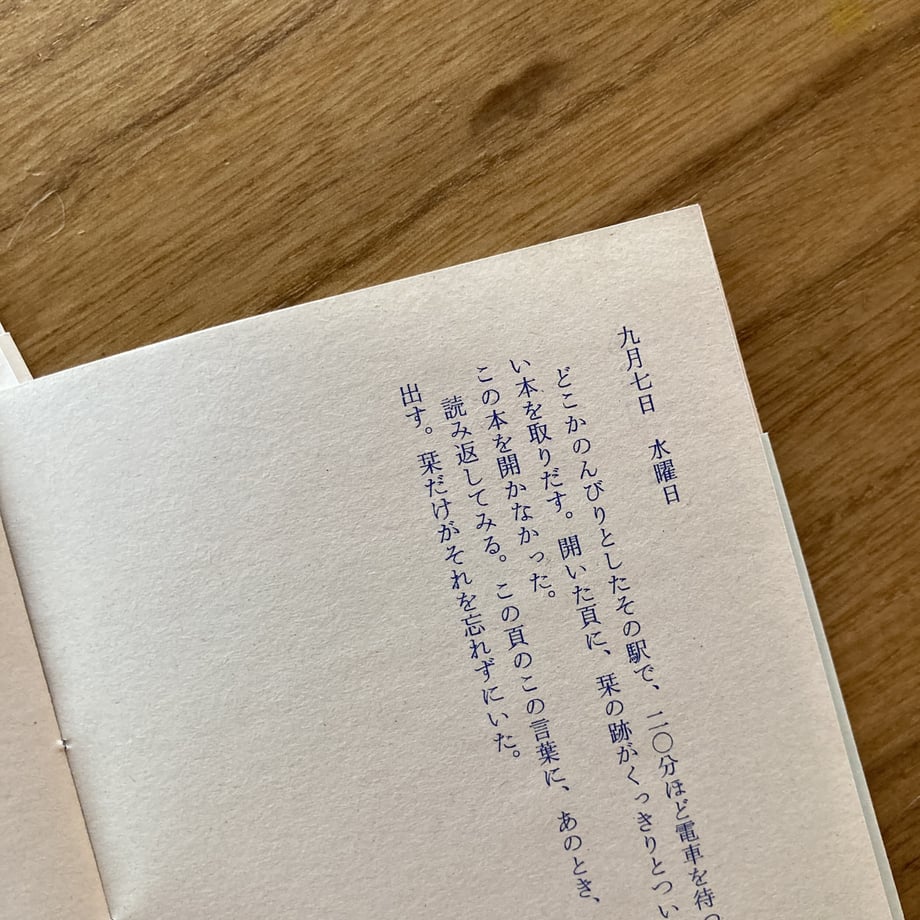 九月七日　水曜日
どこかのんびりとしたその駅で、二〇分ほど電車を待つ
い本を取りだす。開いた頁に、栞の跡がくっきりとつい
この本を開かなかった。
読み返してみる。この頁のこの言葉に、あのとき、
出す。栞だけがそれを忘れずにいた。